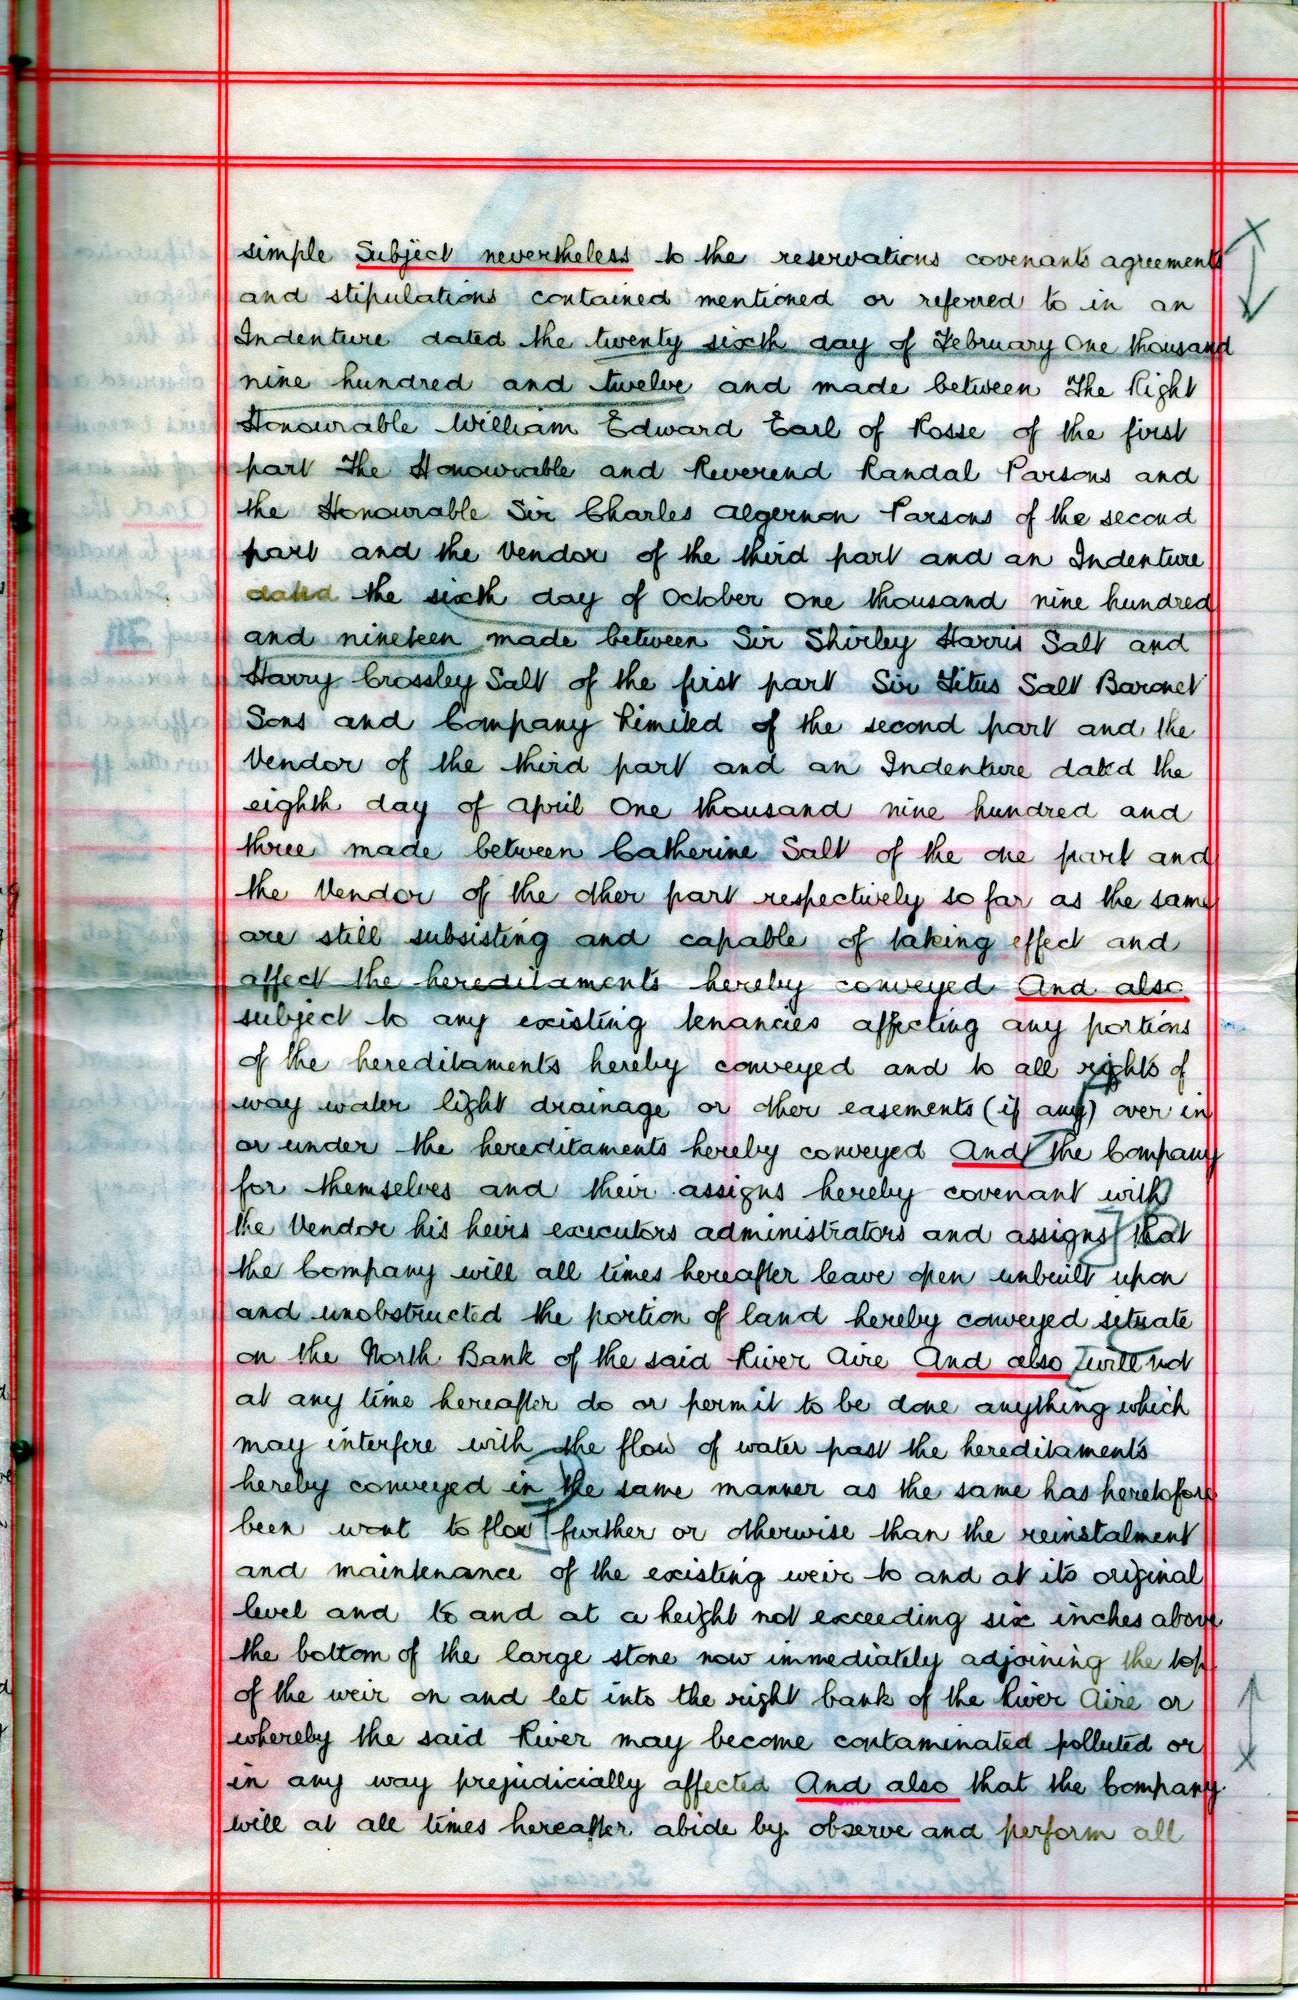 simple Subject nevertheless to the reservations covenants agreements
and stipulations contained mentioned or referred to in an
Indenture dated the twenty sixth day of February One thousand
nine hundred and twelve and made between The Right
Honourable William Edward Earl of Rosse of the first
part The Honourable and Reverend Randal Parsons and
the Honourable Sir Charles Algernon Parsons of the second
part and the Vendor of the third part and an Indenture
dated the sixth day of October One thousand nine hundred
and nineteen made between Sir Shirley Harris Salt and
Harry Crossley Salt of the first part Sir Titus Salt Baronet
Sons and Company Limited of the second part and the
Vendor of the third part and an Indenture dated the
eighth day of April One thousand nine hundred and
three made between Catherine Salt of the one part and
the Vendor of the other part respectively so far as the same
are still subsisting and capable of taking effect and
affect the hereditaments hereby conveyed And also
subject to any existing tenancies affecting any portions
of the hereditaments hereby conveyed and to all rights of
way water light drainage or other easements (if any) over in
or under the hereditaments hereby conveyed And the Company
for themselves and their assigns hereby covenant with
the Vendor his heirs executors administrators and assigns that
the Company will all times hereafter leave open unbuilt upon
and unobstructed the portion of land hereby conveyed situate
on the North Bank of the said River Aire And also will not
at any time hereafter do or permit to be done anything which
may interfere with the flow of water past the hereditaments
hereby conveyed in the same manner as the same has heretofore
been wont to flow further or otherwise than the reinstalment
and maintenance of the existing weir to and at its original
level and to and at a height not exceeding six inches above
the bottom of the large stone now immediately adjoining the top
of the weir on and let into the right bank of the River Aire or
whereby the said River may become contaminated polluted or
in any way prejudicially affected And also that the Company
will at all times hereafter abide by observe and perform all